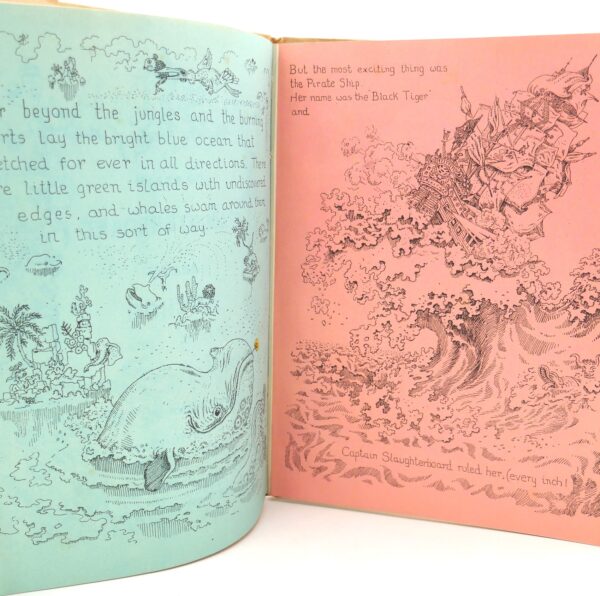 r beyond the jungles and the burning
rts lay the bright blue ocean that
etched for ever in all directions. There
re little green islands with undiscovered
edges, and whales swam around them
in this sort of way.
But the most exciting thing was
the Pirate Ship.
Her name was the 'Black Tiger'
and
Captain Slaughterboard ruled her, (every inch!